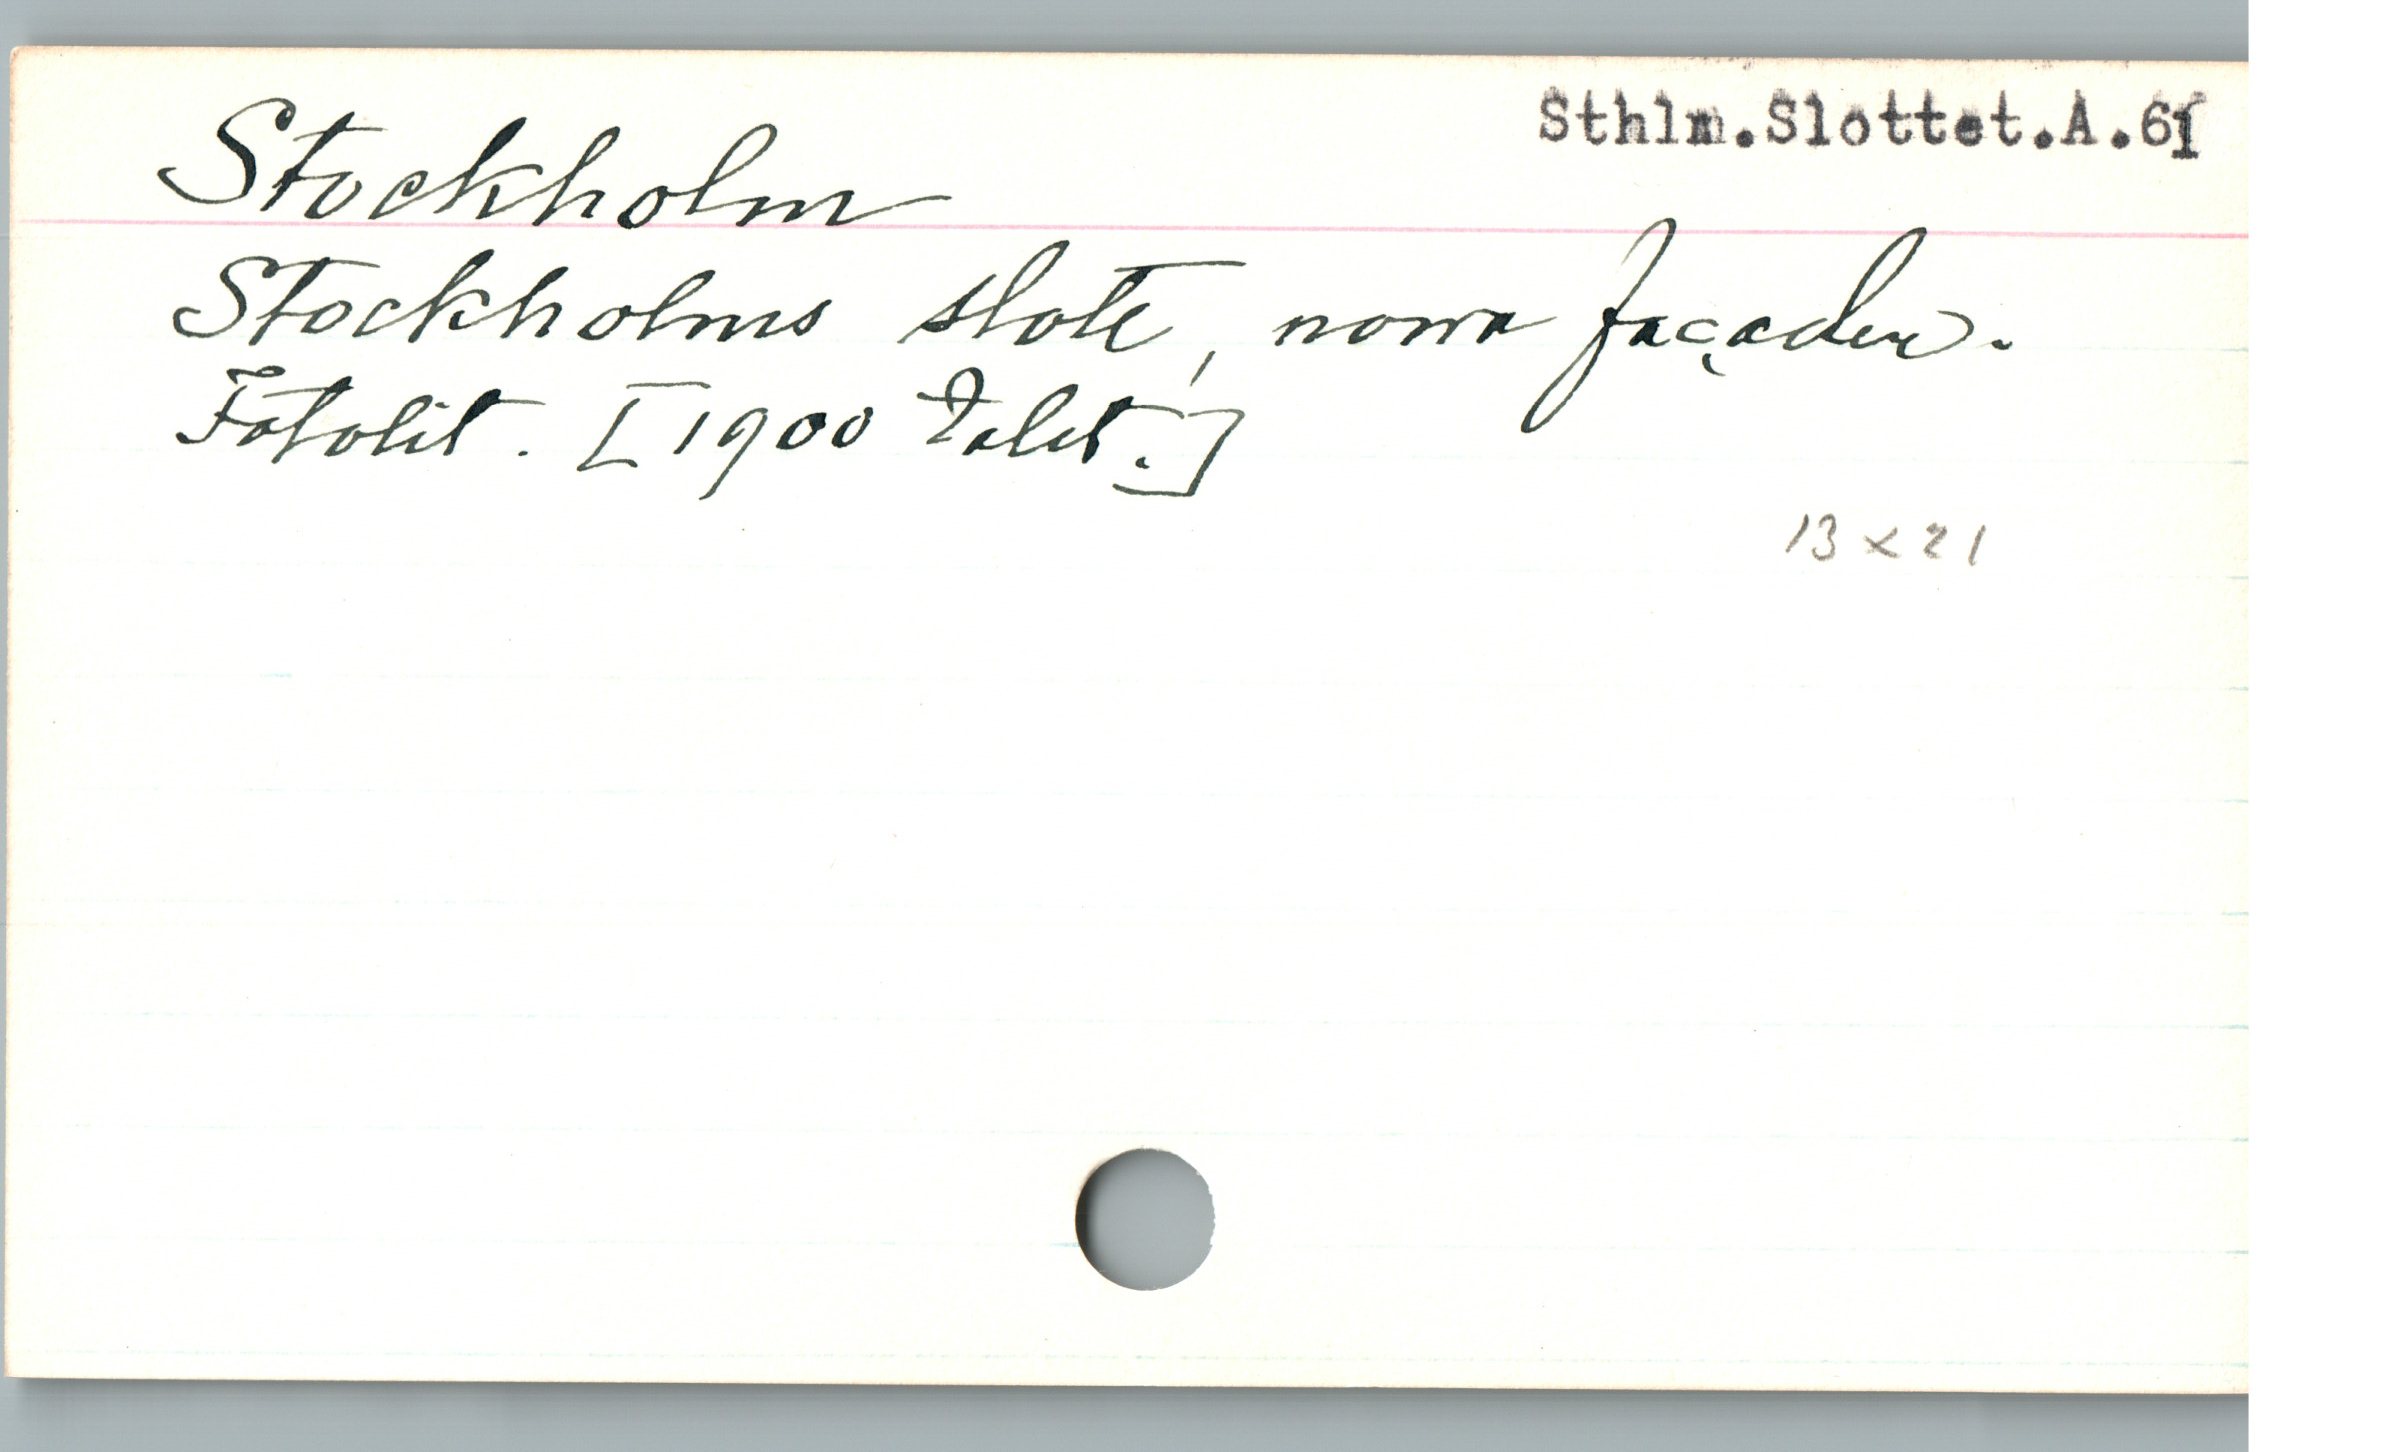 Sthlm.Slottet.A.61
Stockholm
Stockholms slott, norra façaden.
Fotolit. [1900 talet.]
13 x 21